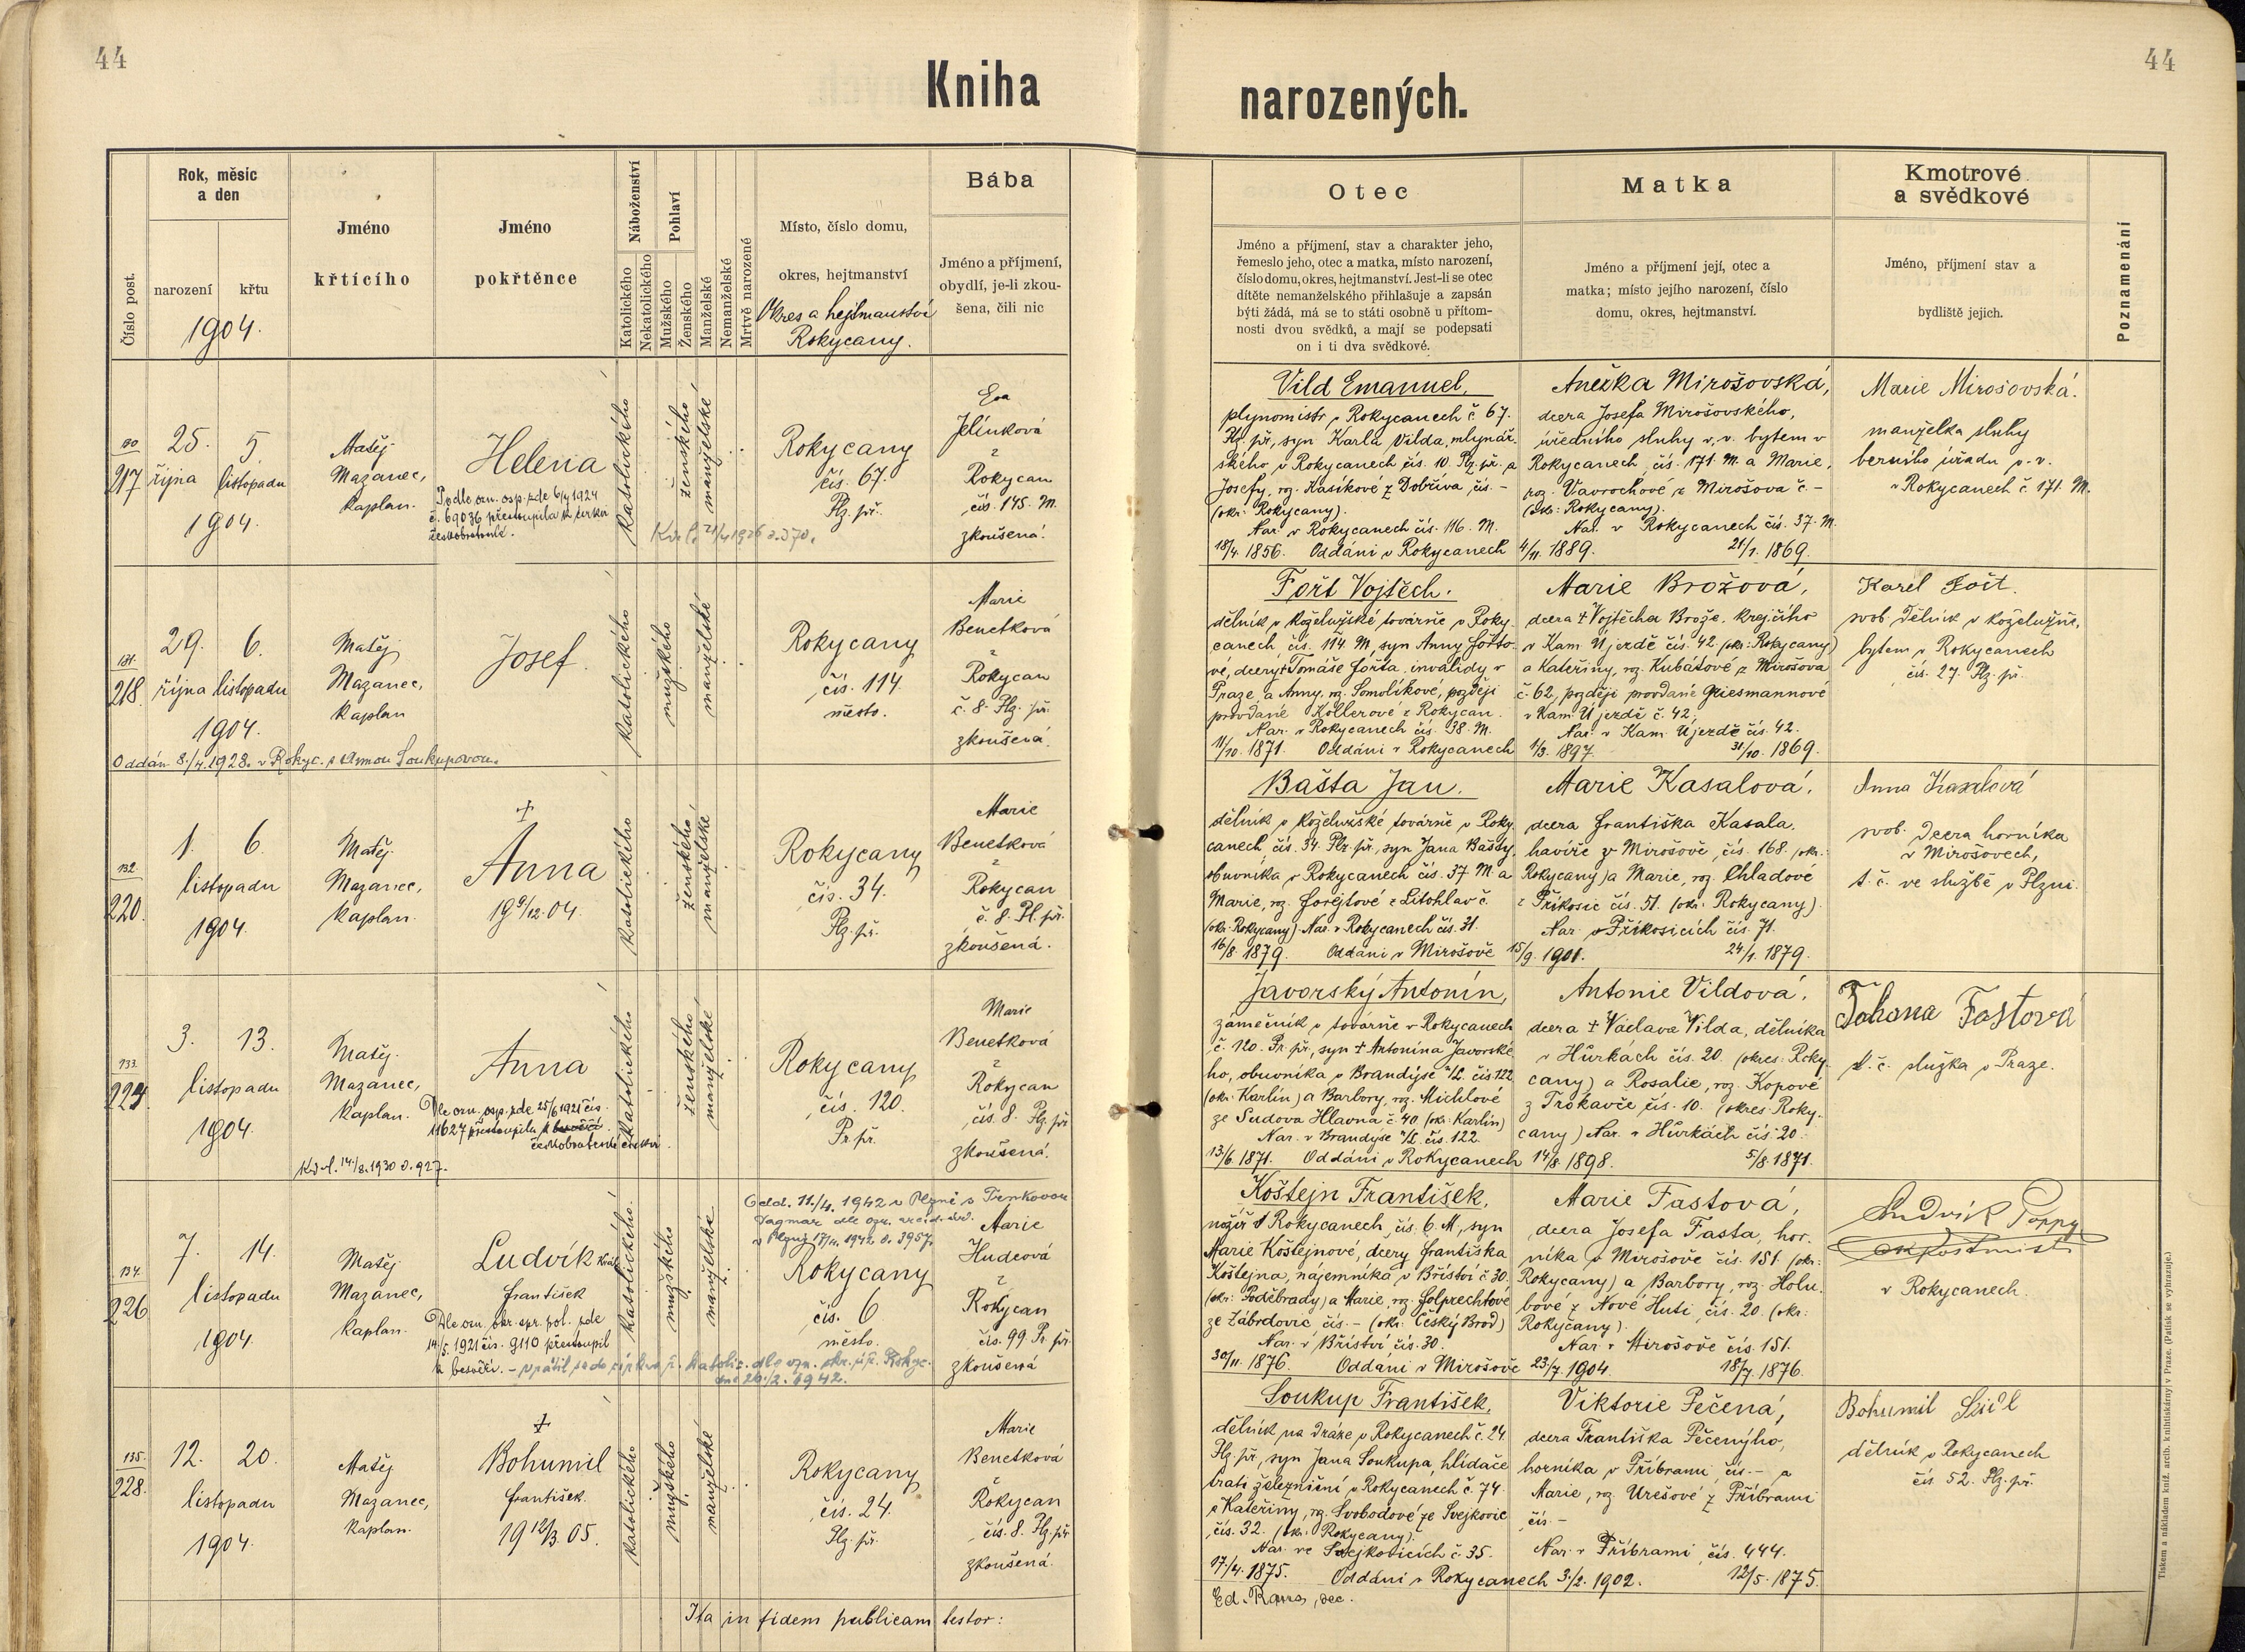 44
44
Kniha
narozených.
Číslo post.
Rok, měsíc
a den
narození
křtu
1904.
Jméno
křtícího
Jméno
pokřtěnce
Náboženství
Katolického
Nekatolického
Pohlaví
Mužského
Ženského
Manželské
Nemanželské
Mrtvě narozené
Místo, číslo domu,
okres, hejtmanství
Okres a hejtmanství
Rokycany.
Bába
Jméno a příjmení,
obydlí, je-li zkou-
šena, čili nic
Otec
Jméno a příjmení, stav a charakter jeho,
řemeslo jeho, otec a matka, místo narození,
číslo domu, okres, hejtmanství. Jest-li se otec
dítěte nemanželského přihlašuje a zapsán
býti žádá, má se to státi osobně u přítom-
nosti dvou svědků, a mají se podepsati
on i ti dva svědkové.
Matka
Jméno a příjmení její, otec a
matka; místo jejího narození, číslo
domu, okres, hejtmanství.
Kmotrové
a svědkové
Jméno, příjmení stav a
bydliště jejich.
Poznamenání
217
25. 5.
října listopadu
1904.
Matěj
Mazanec,
kaplan.
Helena
Podle ozn. osp. zde 6/4 1924
č. 69036 přestoupila k církvi
českobratrské.
katolického
ženského
manželské
Rokycany
čís. 67.
Plz. př.
Eva
Jelínková
z
Rokycan
čís. 145. M.
zkoušená.
Vild Emanuel,
plynomistr v Rokycanech č. 67.
Plz. př., syn Karla Vilda, mlynář-
ského v Rokycanech čís. 10. Plz. př. a
Josefy, roz. Kasíkové z Dobříva, čís. -
(okr. Rokycany).
Nar. v Rokycanech čís. 116. M.
18/4. 1856. Oddáni v Rokycanech 4/11. 1889.
Anežka Mirošovská,
dcera Josefa Mirošovského,
úředního sluhy v. v. bytem v
Rokycanech, čís. 171. M. a Marie,
roz. Vavrochové z Mirošova č. -
(okr. Rokycany).
Nar. v Rokycanech čís. 37. M.
21/1. 1869.
Marie Mirošovská.
manželka sluhy
berního úřadu v. v.
v Rokycanech č. 171. M.
131.
218.
29. 6.
října listopadu
1904.
Matěj
Mazanec,
kaplan
Josef.
katolického
mužského
manželské
Rokycany
čís. 114.
město.
Marie
Benetková
z
Rokycan
č. 8. Plz. př.
zkoušená.
Oddán 8./4. 1928. v Rokyc. s Annou Soukupovou.
Fořt Vojtěch.
dělník v koželužské továrně v Roky-
canech, čís. 114. M, syn Anny Fořto-
vé, dcery † Tomáše Fořta, invalidy v
Praze, a Anny, roz. Somolíkové, později
provdané Köllerové z Rokycan.
Nar. v Rokycanech čís. 38. M.
11/10. 1871. Oddáni v Rokycanech 1/3. 1897.
Marie Brožová,
dcera † Vojtěcha Brože, krejčího
v Kam. Újezdě čís. 42 (okr. Rokycany)
a Kateřiny, roz. Kubátové z Mirošova
č. 62, později provdané Griesmannové
v Kam. Újezdě č. 42,
Nar. v Kam. Újezdě čís. 42.
31/10. 1869.
Karel Fořt.
svob. dělník v koželužně,
bytem v Rokycanech
čís. 27. Plz. př.
132.
220.
1. 6.
listopadu
1904.
Matěj
Mazanec,
kaplan.
†
Anna
19 9/12. 04.
katolického
ženského
manželské
Rokycany
čís. 34.
Plz. př.
Marie
Benetková
z
Rokycan
č. 8. Pl. př.
zkoušená.
Bašta Jan.
dělník v koželužské továrně v Roky-
canech, čís. 34. Plz. př., syn Jana Bašty,
obuvníka v Rokycanech čís. 37 M. a
Marie, roz. Forejtové z Litohlav č.
(okr. Rokycany). Nar. v Rokycanech čís. 31.
16/8. 1879. Oddáni v Mirošově 15/9. 1901.
Marie Kasalová,
dcera Františka Kasala,
havíře v Mirošově, čís. 168. (okr.
Rokycany) a Marie, roz. Chladové
z Příkosic čís. 51. (okr. Rokycany).
Nar. v Příkosicích čís. 71.
24/1. 1879.
Anna Kasalová
svob. dcera horníka
v Mirošovech,
t. č. ve službě v Plzni.
133.
3. 13.
listopadu
1904.
Matěj
Mazanec,
kaplan.
Anna
Dle ozn. osp. zde 25/6 1921 čís.
11627 přestoupila k
českobratrské církvi.
14./8. 1930 č. 927.
katolického
ženského
manželské
Rokycany
čís. 120.
Pr. př.
Marie
Benetková
z
Rokycan
čís. 8. Plz. př.
zkoušená.
Javorský Antonín,
zámečník v továrně v Rokycanech
č. 120. Pr. př., syn † Antonína Javorské-
ho, obuvníka v Brandýse n/L. čís. 122
(okr. Karlín) a Barbory, roz. Michlové
ze Sudova Hlavna č. 40 (okr. Karlín)
Nar. v Brandýse n/L. čís. 122.
13/6. 1871. Oddáni v Rokycanech 14/8. 1898.
Antonie Vildová,
dcera † Václava Vilda, dělníka
v Hůrkách čís. 20. (okres: Roky-
cany) a Rosalie, roz. Kopové
z Trokavče, čís. 10. (okres: Roky-
cany) Nar. v Hůrkách čís. 20.
5/8. 1871.
Johana Fastová
t. č. služka v Praze.
134.
226
7. 14.
listopadu
1904
Matěj
Mazanec,
kaplan.
Ludvík
František
Dle ozn. okr. spr. pol. zde
14/5. 1921 čís. 9110 přestoupil
k bezvěří. - vrátil se do církve ř. katolic. dle ozn. okr. úř. Rokyc.
dne 20./2. 1942.
katolického
mužského
manželské
Odd. 11./4. 1942 v Plzni s Trnkovou
Dagmar
Rokycany
čís. 6
město.
Marie
Hudcová
z
Rokycan
čís. 99 Pr. př.
zkoušená
Koštejn František,
nožíř v Rokycanech, čís. 6. M., syn
Marie Koštejnové, dcery Františka
Koštejna, nájemníka v Bříství č. 30.
(okr. Poděbrady) a Marie, roz. Folprechtové
ze Zábrdovic čís. - (okr. Český Brod)
Nar. v Bříství čís. 30.
30/11. 1876. Oddáni v Mirošově 23/7. 1904.
Marie Fastová,
dcera Josefa Fasta, hor-
níka v Mirošově čís. 151. (okr.
Rokycany) a Barbory, roz. Holu-
bové z Nové Huti, čís. 20. (okr.
Rokycany).
Nar. v Mirošově čís. 151.
18/7. 1876.
Ludvík
v Rokycanech.
135.
228.
12. 20.
listopadu
1904.
Matěj
Mazanec,
kaplan.
†
Bohumil
František.
19 12/3 05.
katolického
mužského
manželské
Rokycany
čís. 24.
Plz. př.
Marie
Benetková
z
Rokycan
čís. 8. Plz. př.
zkoušená.
Soukup František,
dělník na dráze v Rokycanech č. 24.
Plz. př., syn Jana Soukupa, hlídače
trati železniční v Rokycanech č. 74.
a Kateřiny, roz. Svobodové ze Svejkovic
čís. 32. (okr. Rokycany).
Nar. ve Svejkovicích č. 35.
17./4. 1875. Oddáni v Rokycanech 3./2. 1902.
Viktorie Pečená,
dcera Františka Pečeného,
horníka v Příbrami, čís. - a
Marie, roz. Urešové z Příbrami
čís. -
Nar. v Příbrami, čís. 444.
12/5. 1875.
Bohumil Seidl
dělník v Rokycanech
čís. 52. Plz. př.
Ita in fidem publicam testor:
Tiskem a nákladem kníž. arcib. knihtiskárny v Praze. (Patisk se vyhrazuje.)